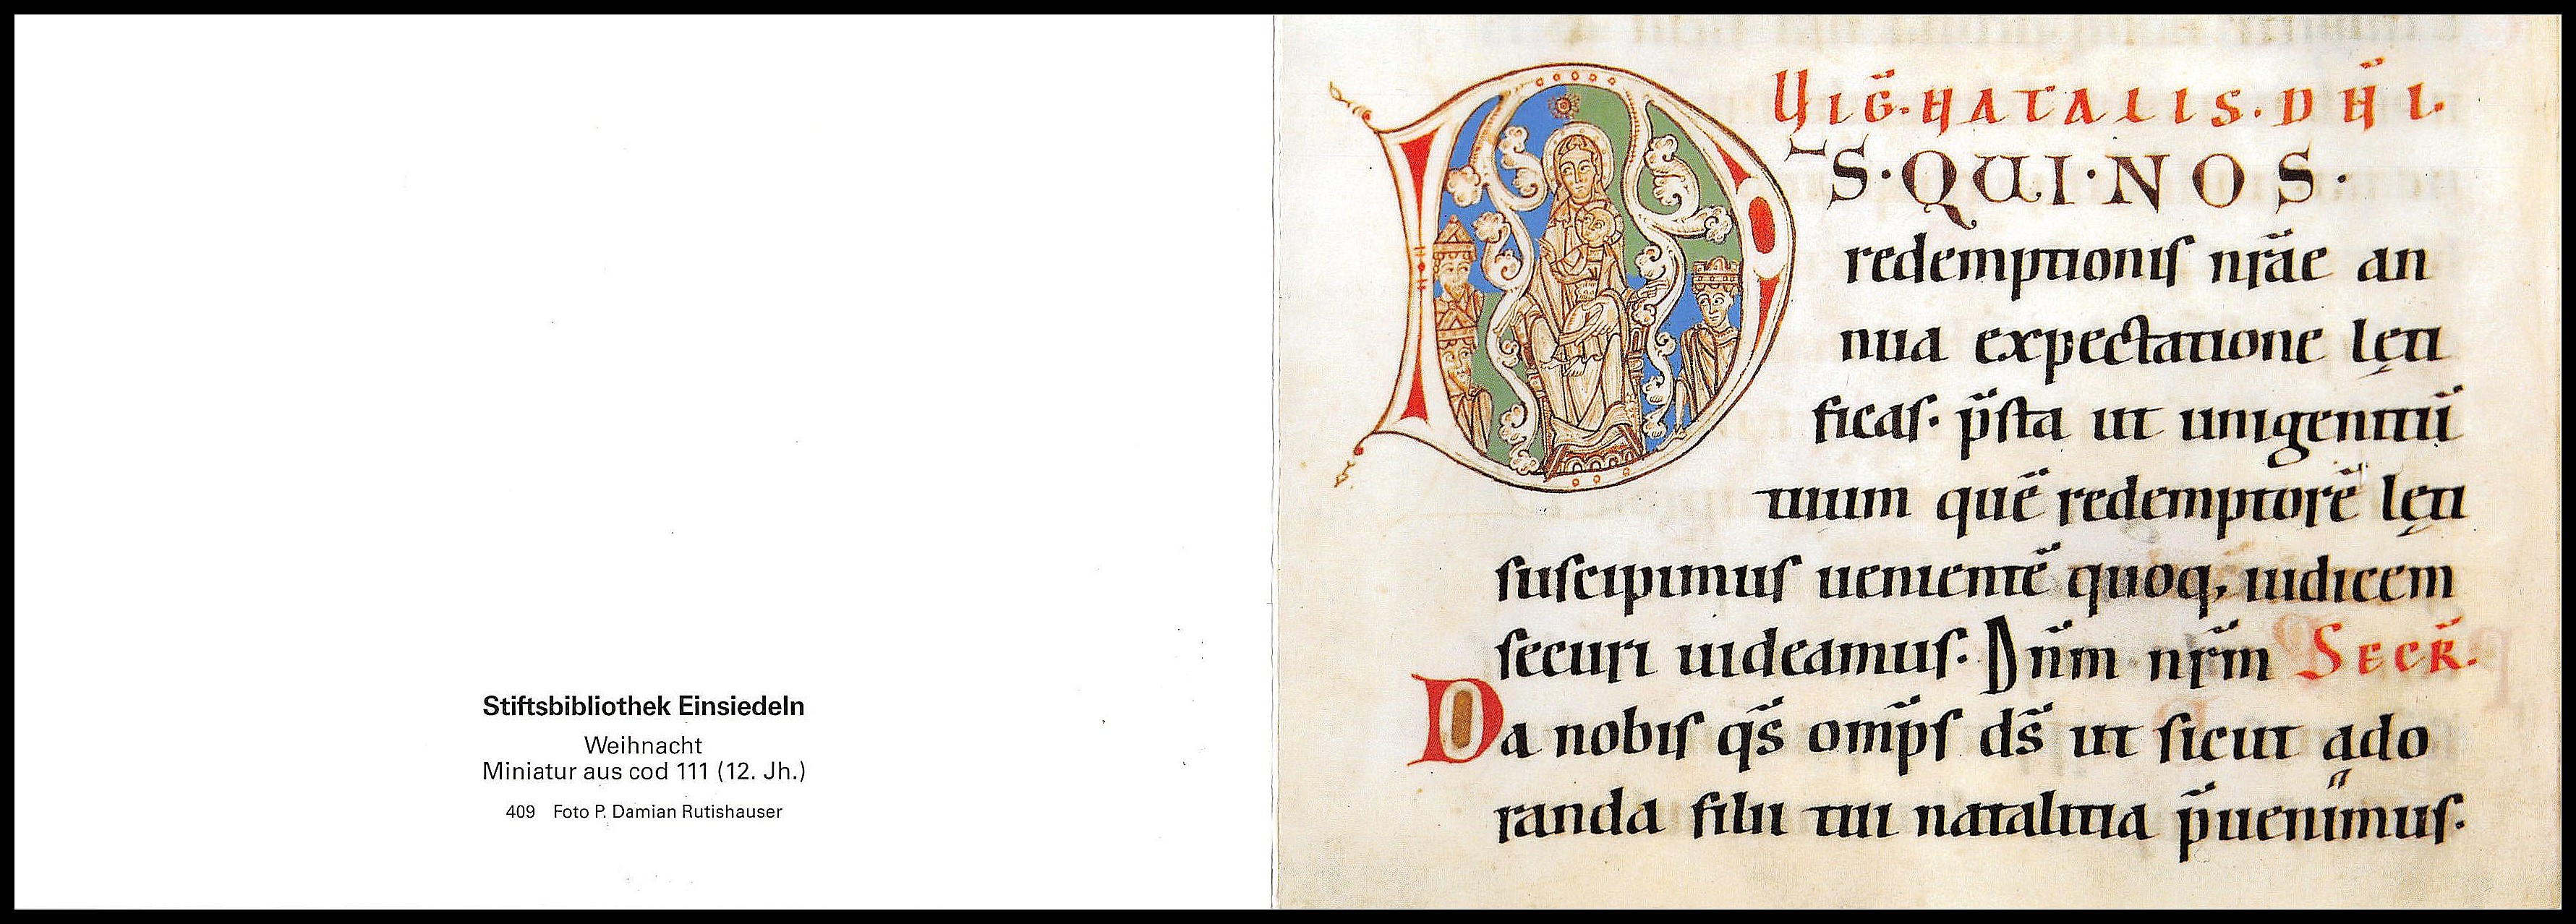 Stiftsbibliothek Einsiedeln
Weihnacht
Miniatur aus cod 111 (12. Jh.)
409 Foto P. Damian Rutishauser
UIḠ·NATALIS·DN̄I·
D̄S·QUI·NOS·
redemptioniſ nr̄ae an
nua expectatione lęti
ficaſ· p̄ſta ut unigenitū
tuum quē redemptorē lęti
ſuſcipimuſ uenientē quoq, iudicem
ſecuri uideamuſ· Dn̄m nr̄m SECR̄·
Da nobiſ qs̄ omp̄ſ ds̄ ut ſicut ado
randa filii tui natalitia p̄uenimuſ·